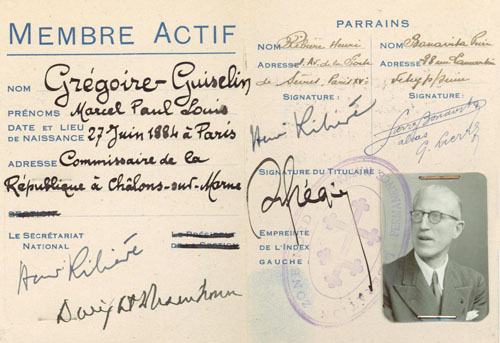 MEMBRE ACTIF
NOM Grégoire-Guiselin
PRÉNOMS Marcel Paul Louis
DATE ET LIEU
DE NAISSANCE 27 Juin 1884 à Paris
ADRESSE Commissaire de la
République à Châlons-sur-Marne
LE SECRÉTARIAT
NATIONAL
LE PRÉSIDENT
DE LA SECTION
Henri Ribière
PARRAINS
NOM Ribière Henri
ADRESSE Av. de la Porte
de Sèvres, Paris XV
SIGNATURE :
Henri Ribière
NOM Bonavita
ADRESSE
SIGNATURE :
alias
SIGNATURE DU TITULAIRE :
EMPREINTE
DE L'INDEX
GAUCHE